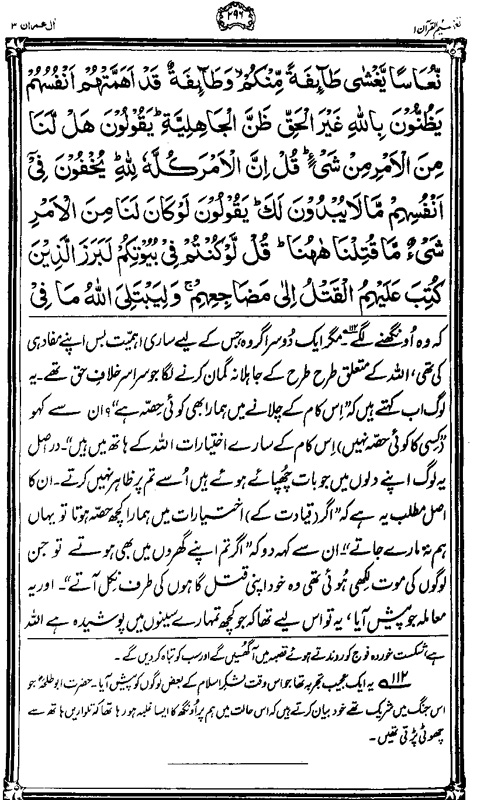 اٰل عمران ۳
۲۹۶
تفہیم القرآن ۱
نُّعَاسًا يَّغْشٰى طَآئِفَةً مِّنْكُمْ ۙ وَطَآئِفَةٌ قَدْ اَهَمَّتْهُمْ اَنْفُسُهُمْ
يَظُنُّوْنَ بِاللّٰهِ غَيْرَ الْحَقِّ ظَنَّ الْجَاهِلِيَّةِ ؕ يَقُوْلُوْنَ هَلْ لَّنَا
مِنَ الْاَمْرِ مِنْ شَىْءٍ ؕ قُلْ اِنَّ الْاَمْرَ كُلَّهٗ لِلّٰهِ ؕ يُخْفُوْنَ فِىْٓ
اَنْفُسِهِمْ مَّا لَا يُبْدُوْنَ لَكَ ؕ يَقُوْلُوْنَ لَوْ كَانَ لَنَا مِنَ الْاَمْرِ
شَىْءٌ مَّا قُتِلْنَا هٰهُنَا ؕ قُلْ لَّوْ كُنْتُمْ فِىْ بُيُوْتِكُمْ لَبَرَزَ الَّذِيْنَ
كُتِبَ عَلَيْهِمُ الْقَتْلُ اِلٰى مَضَاجِعِهِمْ ۚ وَلِيَبْتَلِىَ اللّٰهُ مَا فِىْ
کہ وہ اُونگھنے لگے۱۱۲۔ مگر ایک دُوسرا گروہ جس کے لیے ساری اہمیّت بس اپنے مفاد ہی
کی تھی، اللہ کے متعلق طرح طرح کے جاہلانہ گمان کرنے لگا جو سراسر خلافِ حق تھے۔ یہ
لوگ اب کہتے ہیں کہ ”اِس کام کے چلانے میں ہمارا بھی کوئی حصّہ ہے“؟ ان سے کہو
”(کِسی کا کوئی حصّہ نہیں) اِس کام کے سارے اختیارات اللہ کے ہاتھ میں ہیں“۔ دراصل
یہ لوگ اپنے دلوں میں جو بات چُھپائے ہوئے ہیں اُسے تم پر ظاہر نہیں کرتے۔ ان کا
اصل مطلب یہ ہے کہ ”اگر (قیادت کے) اختیارات میں ہمارا کچھ حصّہ ہوتا تو یہاں
ہم نہ مارے جاتے“۔ ان سے کہہ دو کہ ”اگر تم اپنے گھروں میں بھی ہوتے تو جن
لوگوں کی موت لکھی ہوئی تھی وہ خود اپنی قتل گاہوں کی طرف نکل آتے“۔ اور یہ
معاملہ جو پیش آیا، یہ تو اس لیے تھا کہ جو کچھ تمہارے سینوں میں پوشیدہ ہے اللہ
ہے، شکست خوردہ فوج کو روندتے ہوئے قصبہ میں آگھسیں گے اور سب کو تباہ کر دیں گے۔
۱۱۲ یہ ایک عجیب تجربہ تھا جو اس وقت لشکرِ اسلام کے بعض لوگوں کو پیش آیا۔ حضرت ابو طلحہؓ جو
اس جنگ میں شریک تھے خود بیان کرتے ہیں کہ اس حالت میں ہم پر اُونگھ کا ایسا غلبہ ہو رہا تھا کہ تلواریں ہاتھ سے
چھوٹی پڑتی تھیں۔